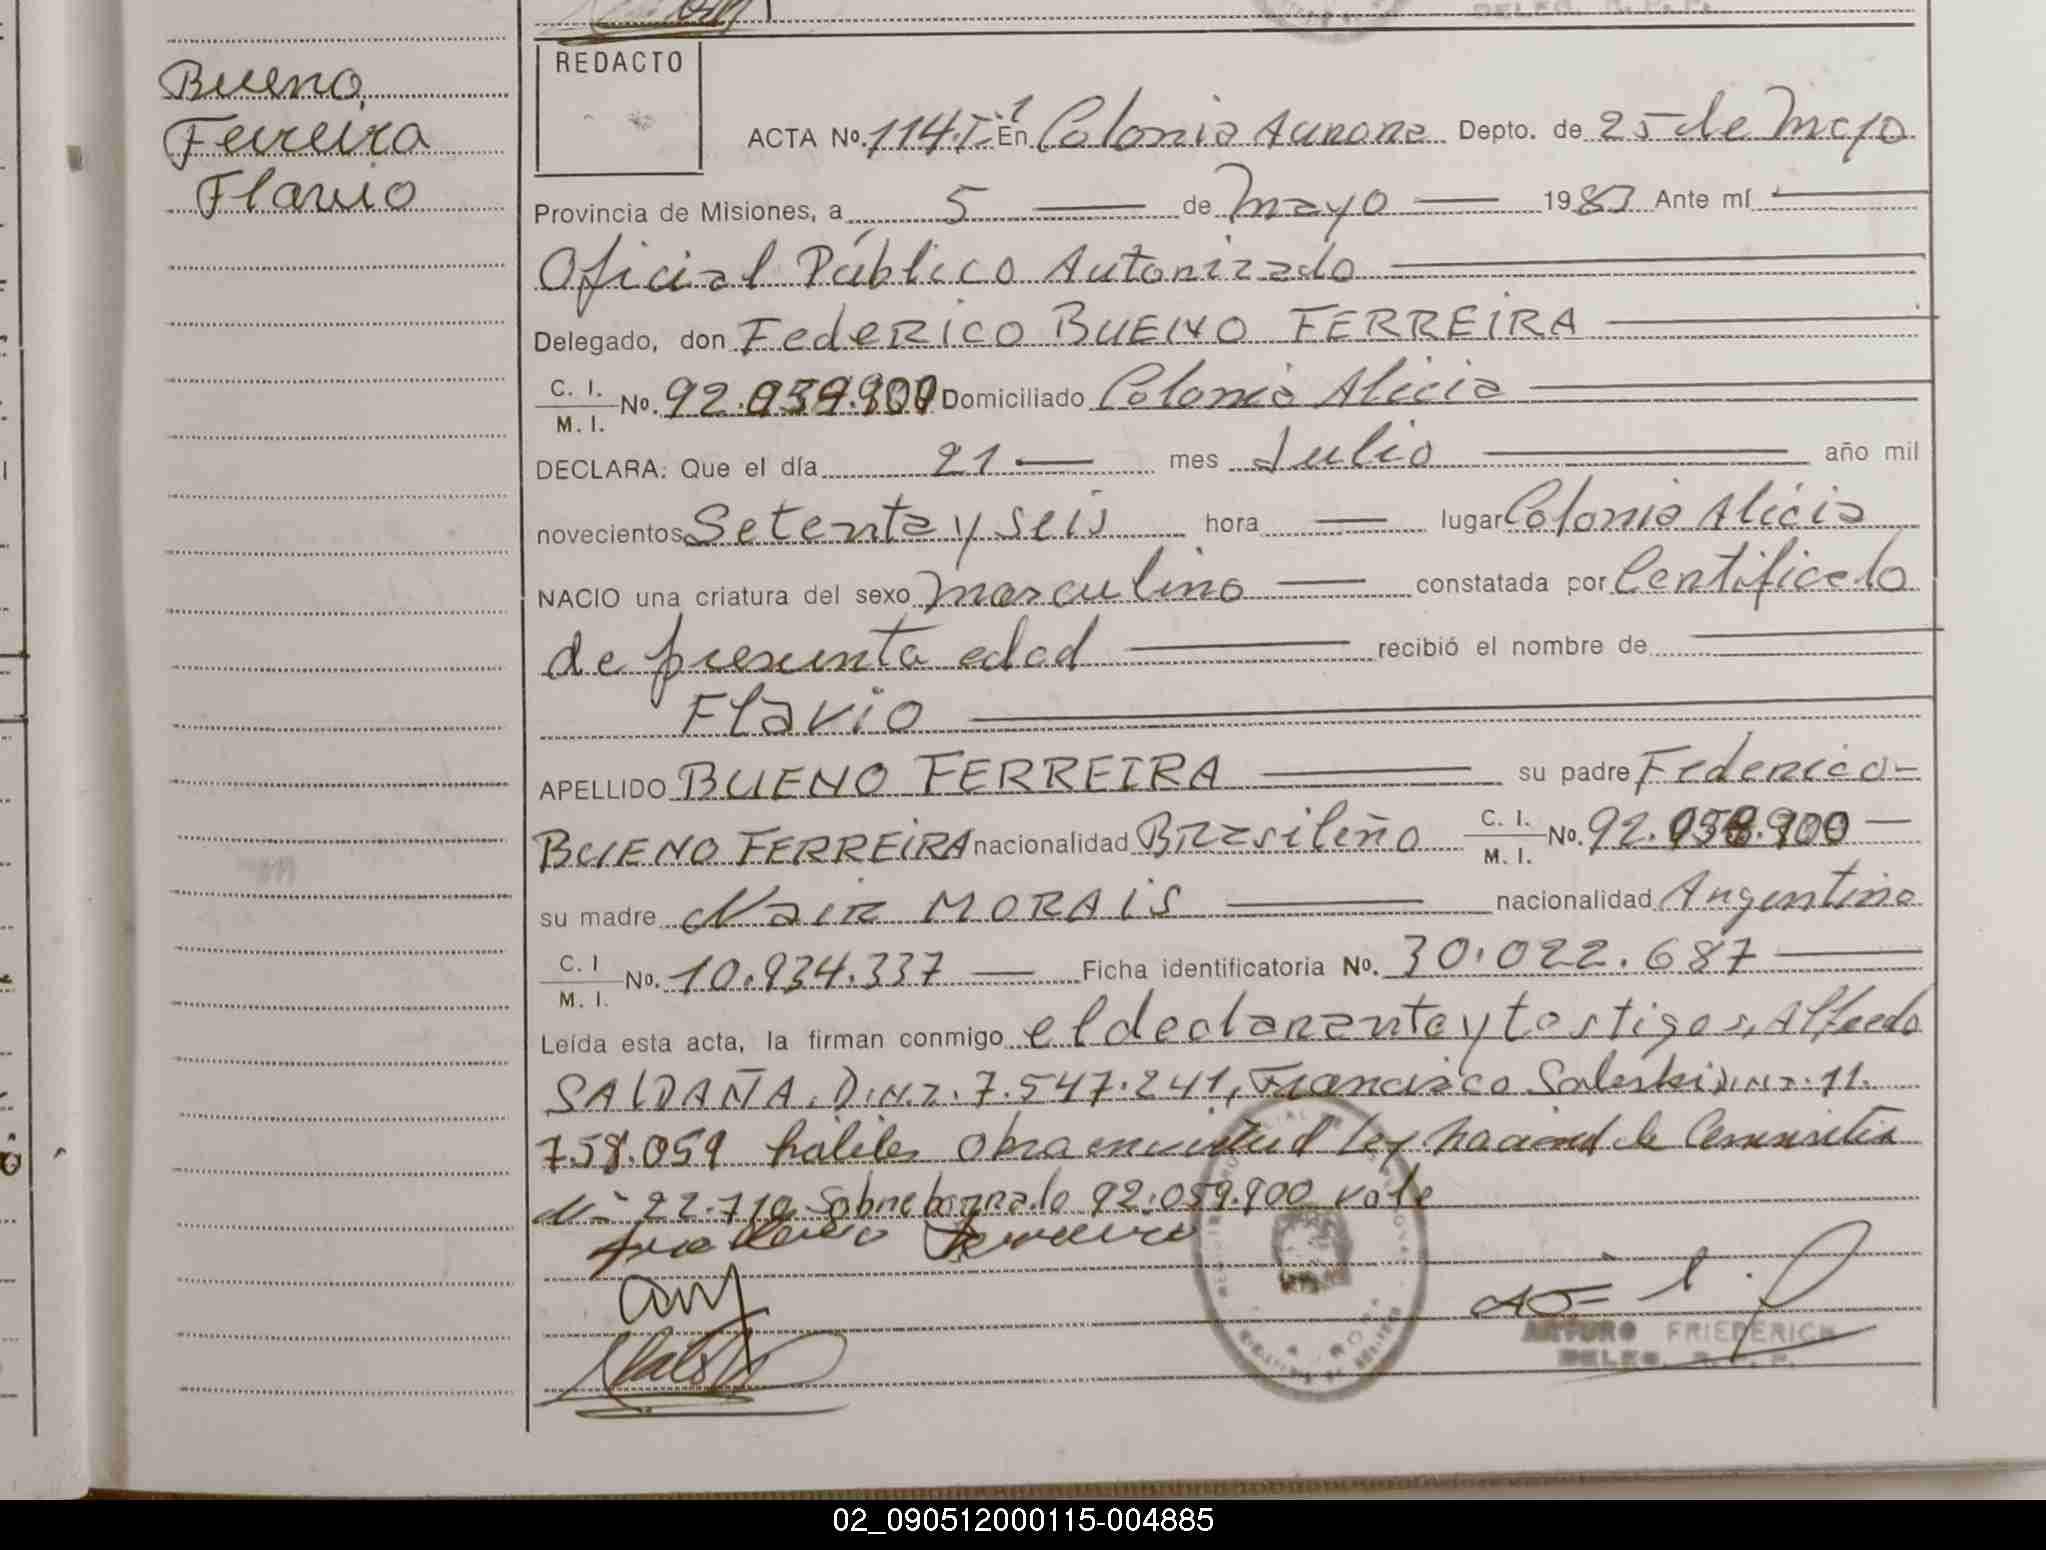 Bueno
Ferreira
Flavio
REDACTO
ACTA No. 114 T: 1 En Colonia Aurora Depto. de 25 de Mayo
Provincia de Misiones, a 5 de Mayo 1983 Ante mí
Oficial Público Autorizado
Delegado, don Federico BUENO FERREIRA
C. I. / M. I. No. 92.059.900 Domiciliado Colonia Alicia
DECLARA: Que el día 21 mes Julio año mil
novecientos Setenta y seis hora lugar Colonia Alicia
NACIO una criatura del sexo masculino constatada por Certificado
de presunta edad recibió el nombre de
Flavio
APELLIDO BUENO FERREIRA su padre Federico
BUENO FERREIRA nacionalidad Brasileño C. I. / M. I. No. 92.059.900
su madre Nair MORAIS nacionalidad Argentina
C. I / M. I. No. 10.934.337 Ficha identificatoria No. 30.022.687
Leída esta acta, la firman conmigo el declarante y testigos, Alfredo
SALDAÑA. D.N.I. 7.547.241, Francisco Saleski D.N.I. 11.
758.059 habiles Obra en virtud Ley nacional de
Nº 22.710 Sobre borrado 92.059.900 vale
Ferreira
ARTURO FRIEDERICH
DELEG. R. P. P.
02_090512000115-004885